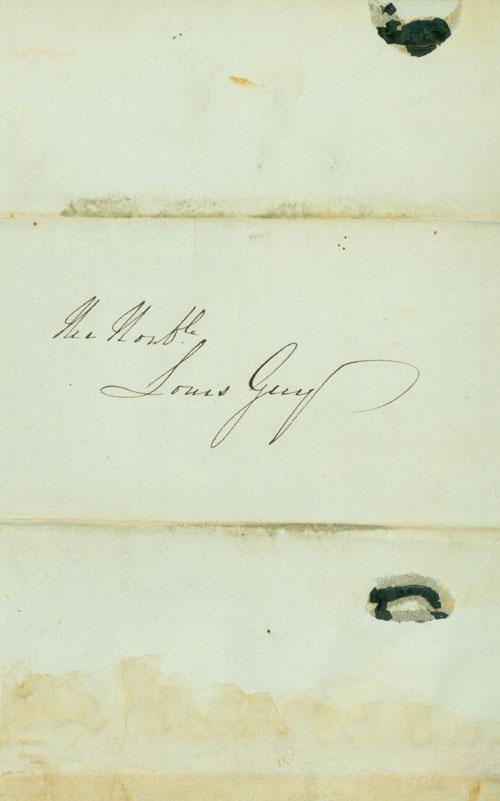 The Honble
Louis Guy